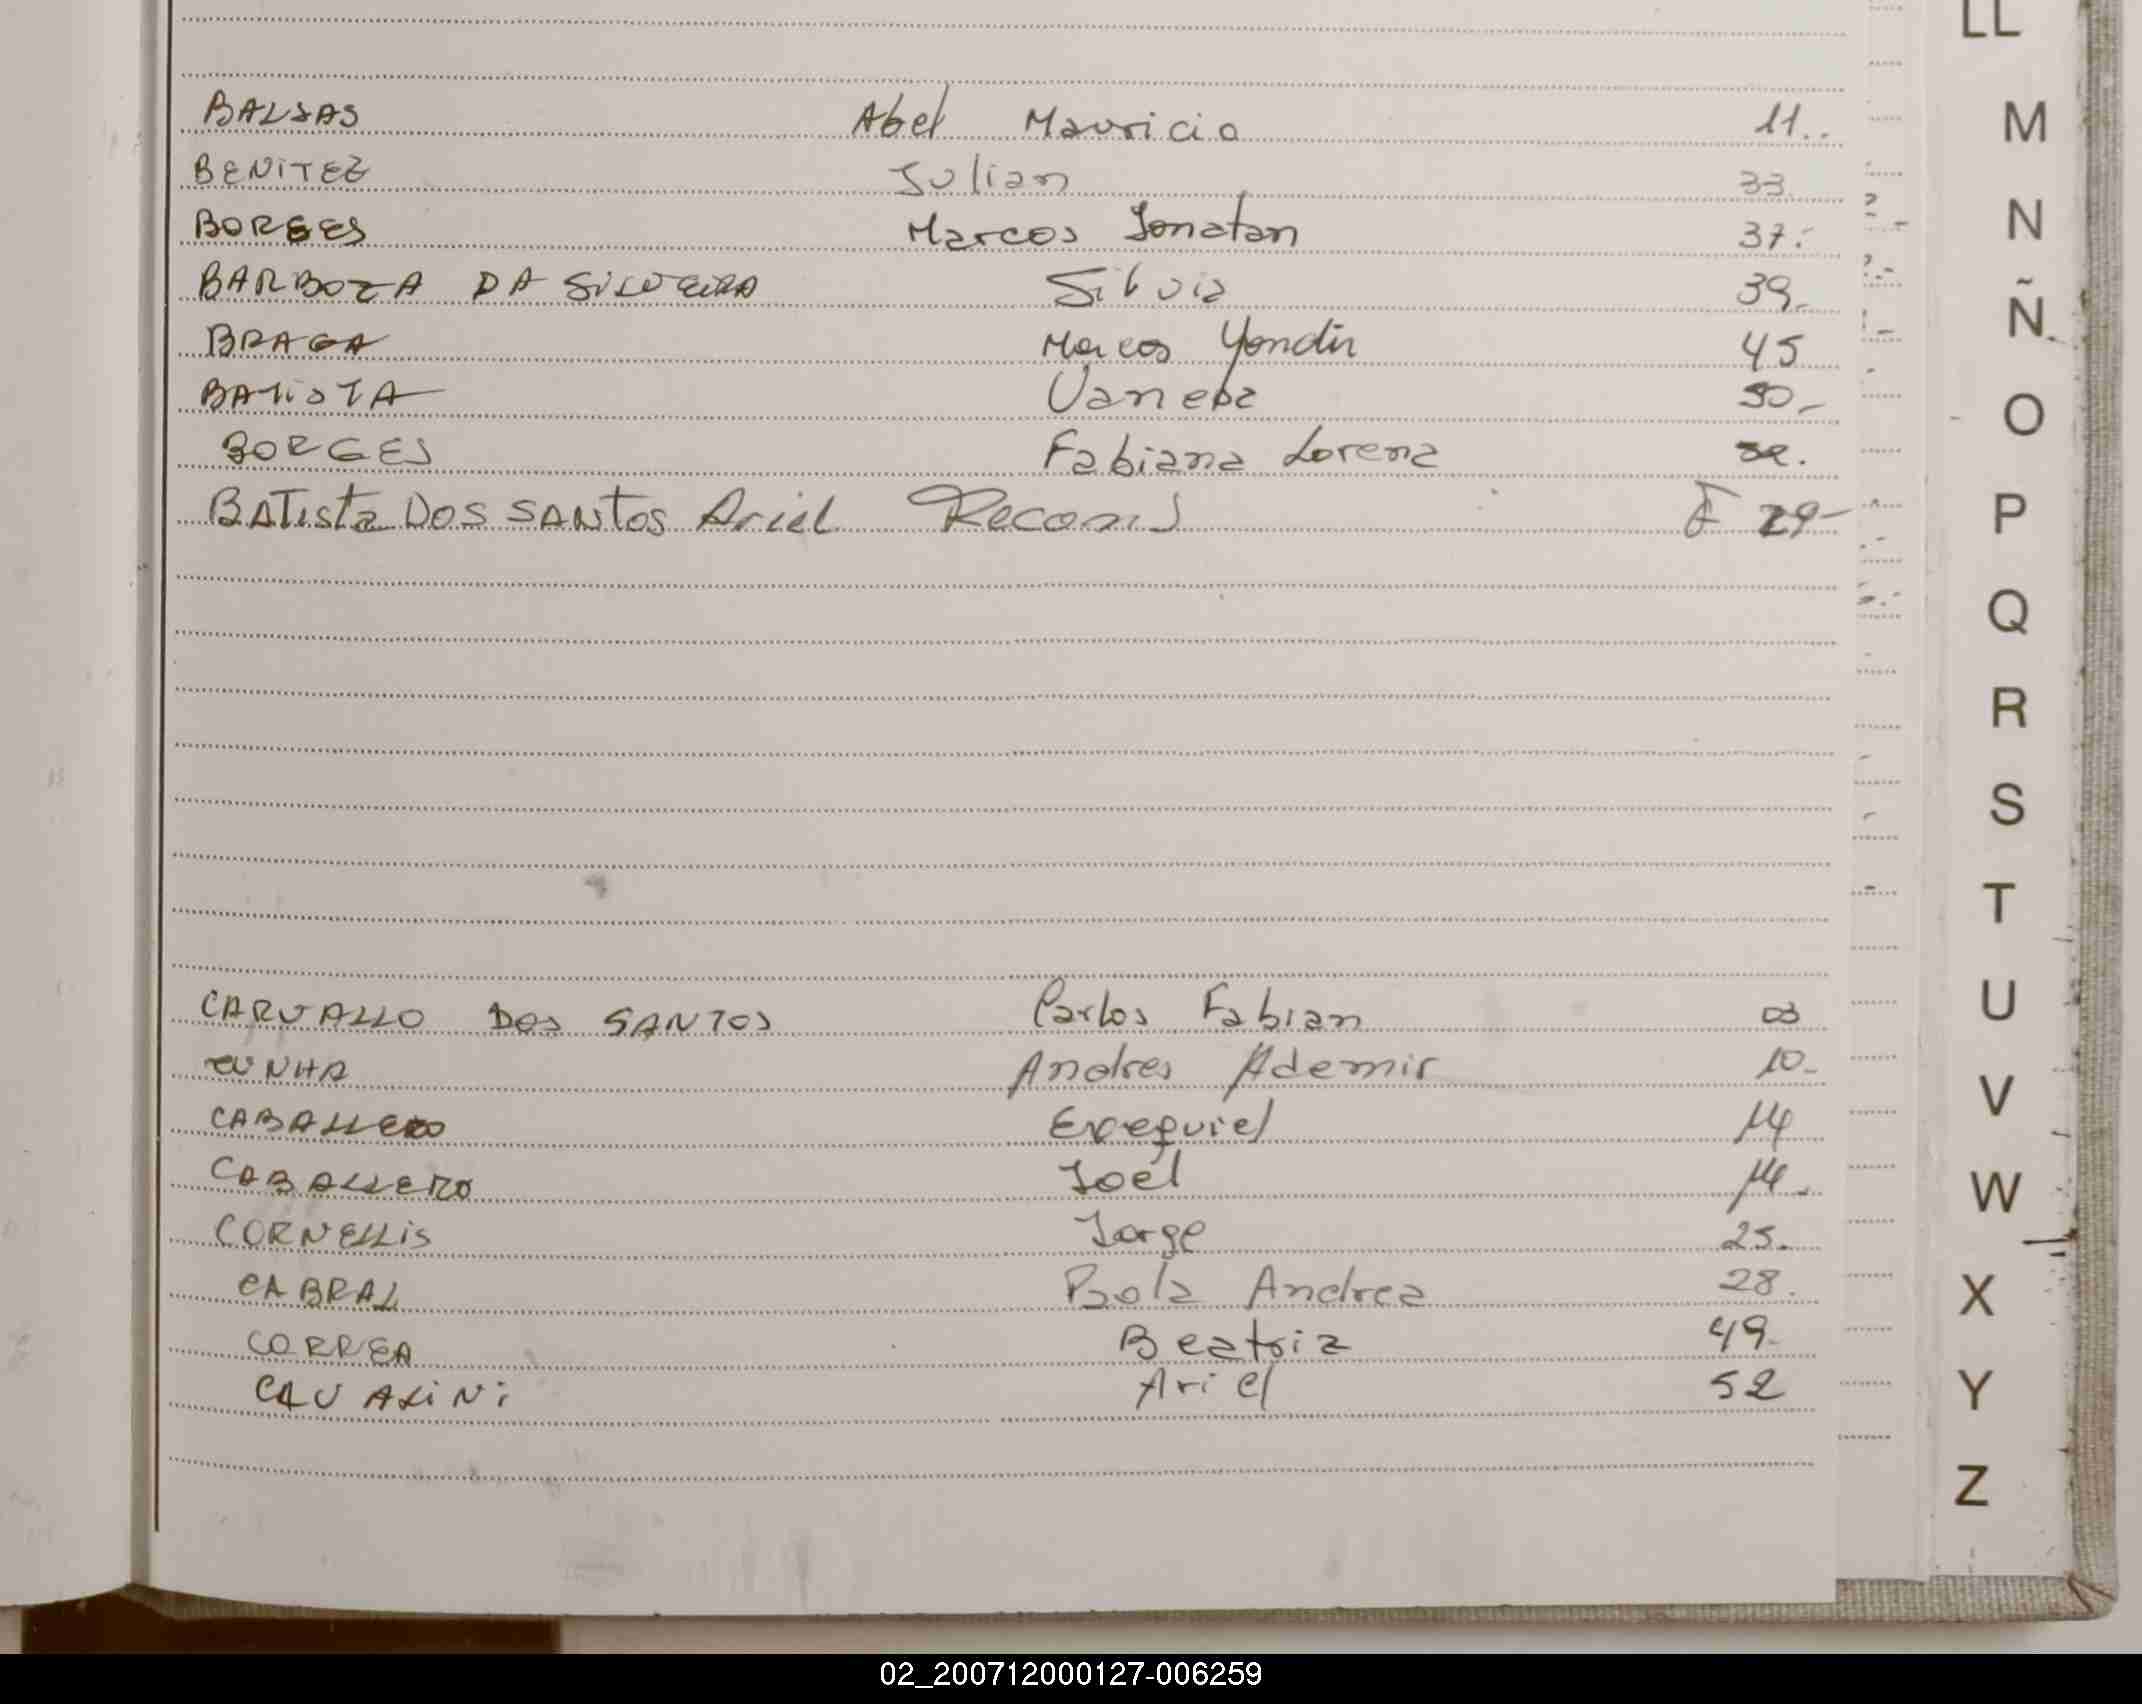 BALSAS Abel Mauricio 11..
BENITEZ Julian 33.
BORGES Marcos Jonatan 37.-
BARBOZA DA SILVEIRA Silvia 39.-
BRAGA Marcos Yondir 45
BATISTA Vanesa 50.-
BORGES Fabiana Lorena
BATista DOS SANTOS Ariel Recons F 29-
CARVALLO DOS SANTOS Carlos Fabian 03
CUNHA Andres Ademir 10.-
CABALLERO Exequiel 14
CABALLERO Joel 14.-
CORNELLIS Jorge 25.
CABRAL Andrea 28.
CORREA Beatriz 49.
CAVALINI Ariel 52
LL
M
N
Ñ
O
P
Q
R
S
T
U
V
W
X
Y
Z
02_200712000127-006259